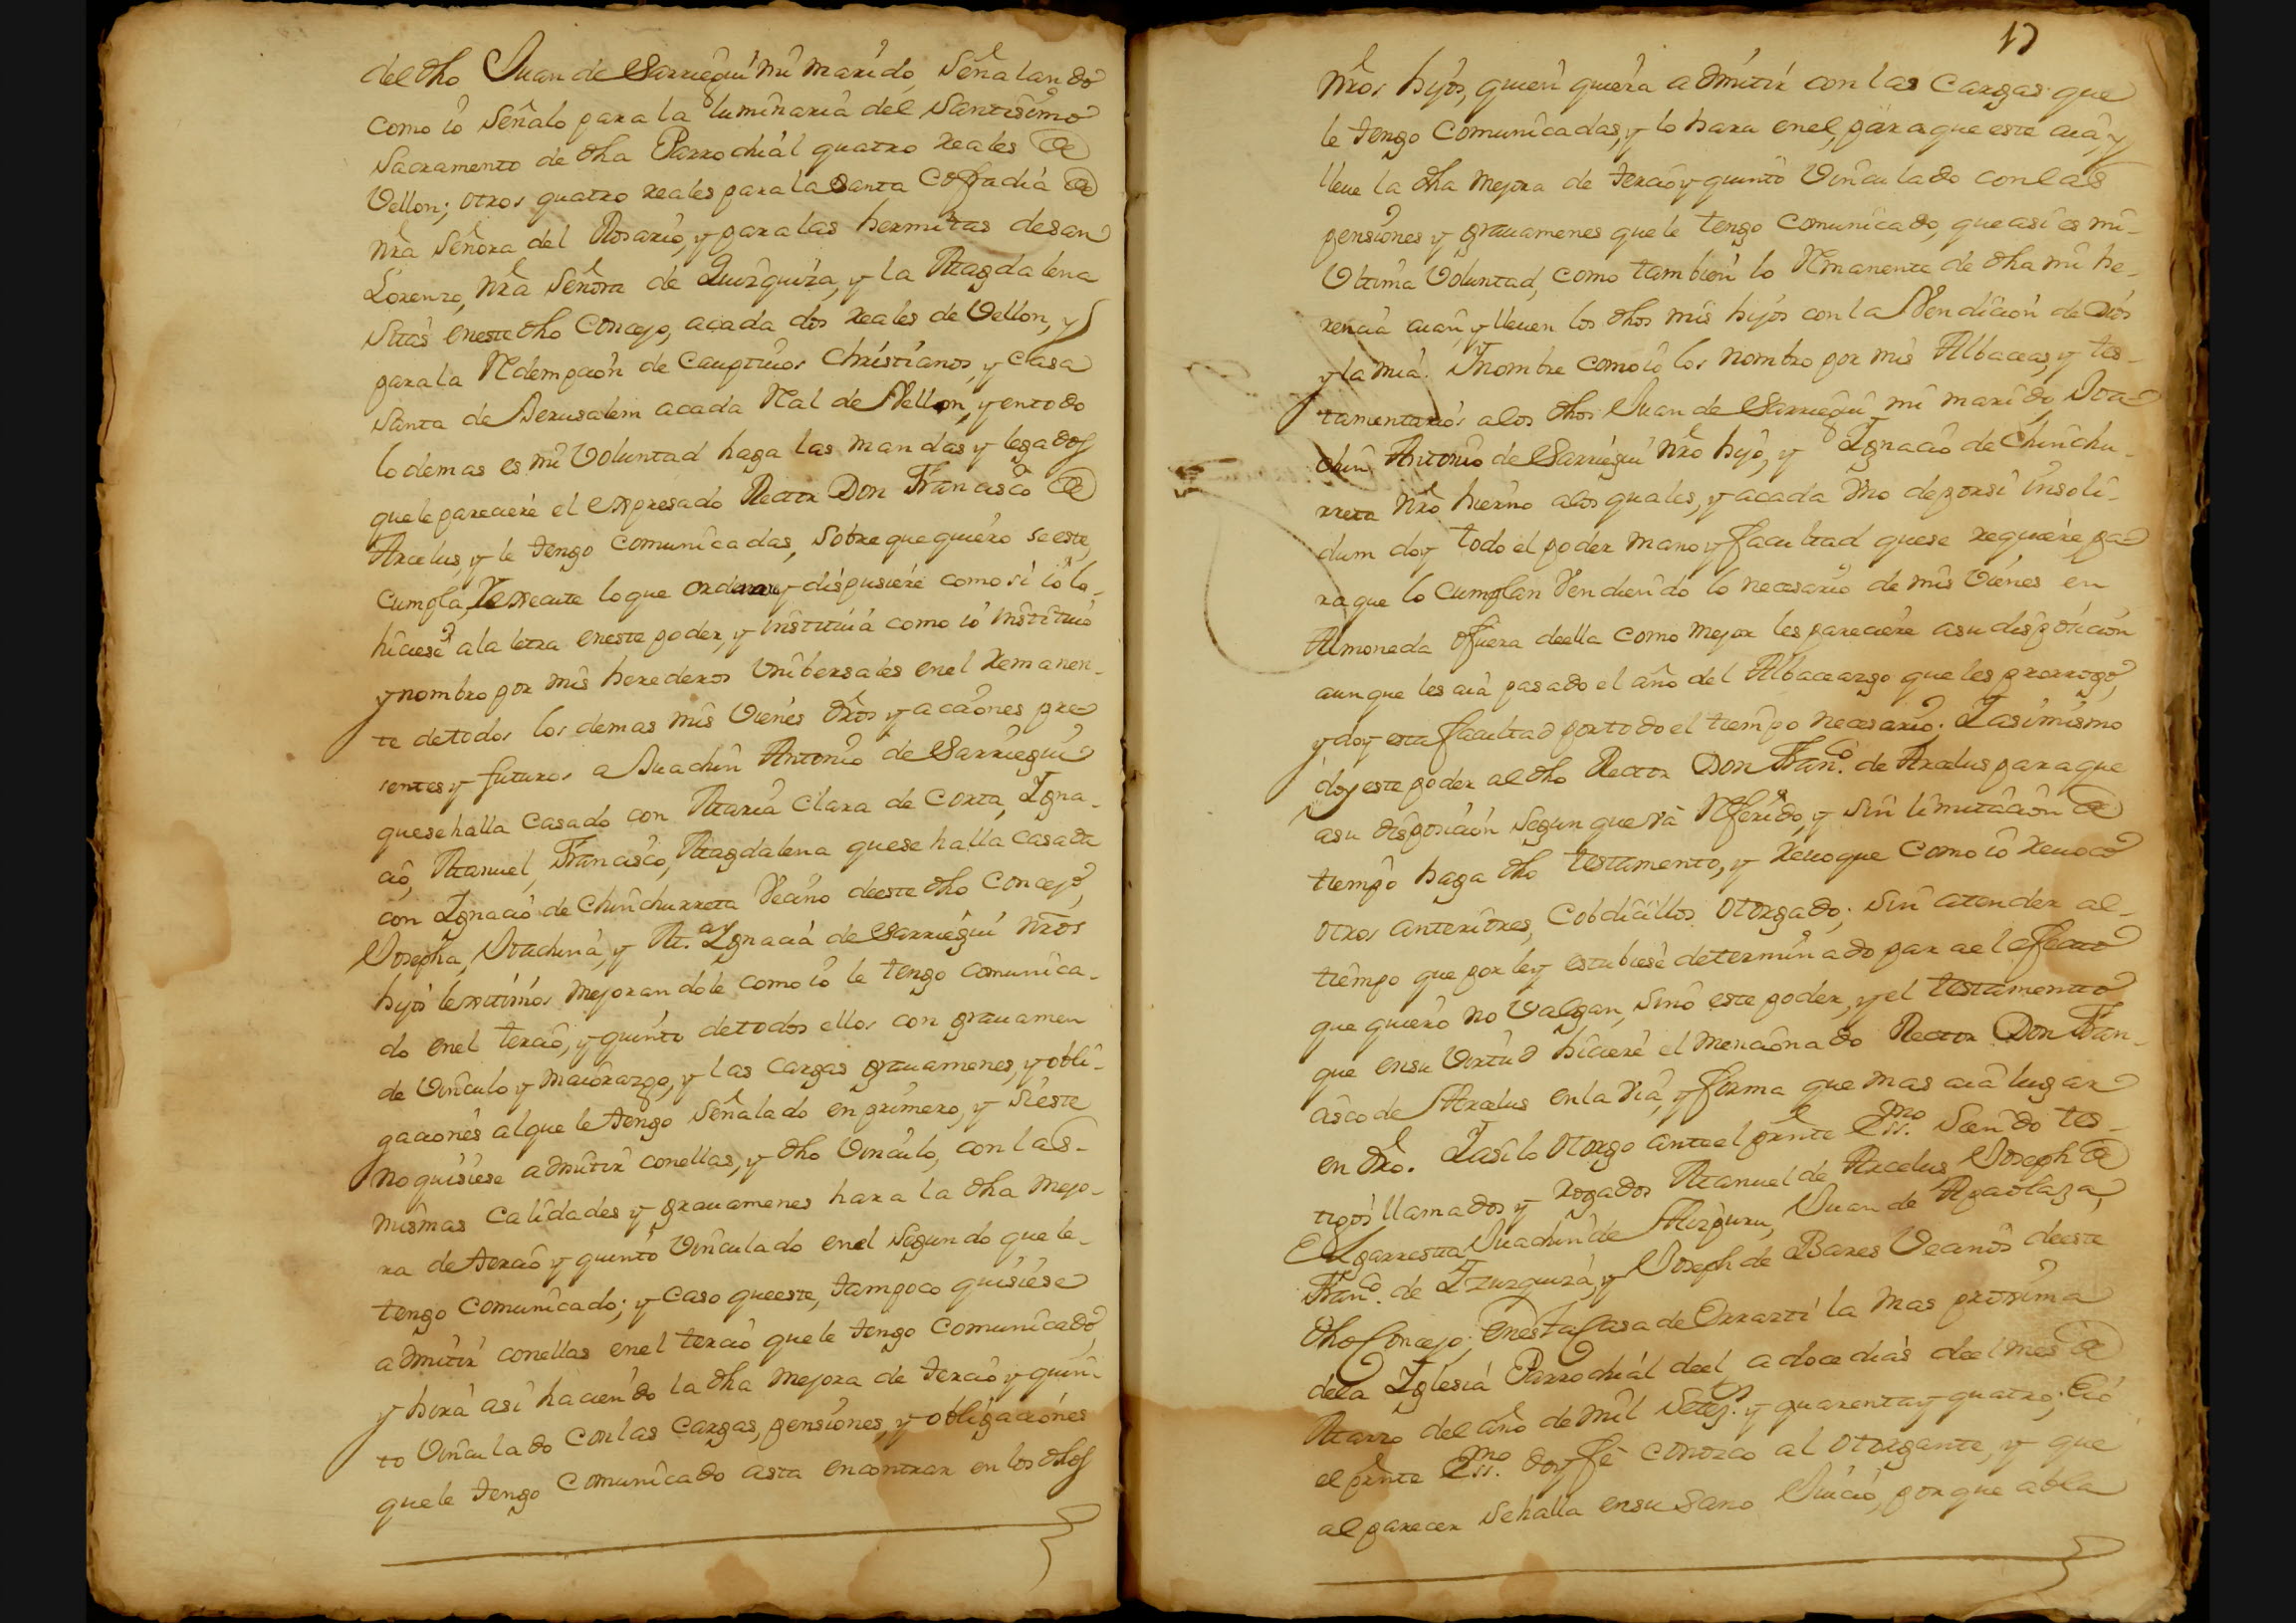 del dho Juan de Sarriegui mi marido, señalando
como io señalo para la luminaria del Santisimo
Sacramento de dha Parrochial quatro reales de
Vellon; otros quatro reales para la Santa Cofradia de
nra Señora del Rosario, y para las hermitas de san
Lorenzo, nra Señora de Quizquiza, y la Magdalena
sitas en este dho Concejo, a cada dos reales de Vellon, y
para la Redempcion de Cauptiuos Christianos, y Casa
Santa de Jerusalem a cada Real de Vellon, y en todo
lo demas es mi Voluntad haga las mandas y legados
que le pareciere el expresado Rector Don Francisco de
Arcelus, y le tengo comunicadas, sobre que quiero se este,
cumpla, y execute lo que ordenare y dispusiere como si io lo
hiciese a la letra en este poder, y instituia como io instituio
y nombro por mis herederos Unibersales en el remanen-
te de todos los demas mis Vienes dros y acciones pre
sentes y futuros a Juachin Antonio de Sarriegui
que se halla casado con Maria Clara de Corta, Igna-
cio, Manuel, Francisco, Magdalena que se halla casada
con Ignacio de Chinchurreta Vecino de este dho Concejo,
Josepha, Joachina, y M.a Ignacia de Sarriegui nros
hijos lexitimos mejorandole como io le tengo comunica-
do en el tercio, y quinto de todos ellos con grauamen
de Vinculo y Maiorazgo, y las cargas grauamenes, y obli-
gaciones al que le tengo señalado en primero, y si este
no quisiese admitir con ellas, y dho Vinculo, con las
mismas calidades y grauamenes hara la dha mejo-
ra de tercio y quinto Vinculado en el segundo que le
tengo comunicado; y caso que este, tampoco quisiese
admitir con ellas en el tercio que le tengo comunicado,
y hira asi haciendo la dha mejora de tercio y quin-
to Vinculado con las cargas, pensiones, y obligaciones
que le tengo comunicado asta encontrar en los dhos
17
nros hijos, quien quiera admitir con las cargas que
le tengo comunicadas, y lo hara en el, para que este aia, y
lleue la dha mejora de tercio y quinto Vinculado con las
pensiones y grauamenes que le tengo comunicado, que asi es mi
Ultima Voluntad, como tambien lo Remanente de dha mi he-
rencia aian, y lleuen los dhos mis hijos con la Vendicion de Dios
y la mia. Y nombre como io los nombro por mis Albaceas, y tes-
tamentarios a los dhos Juan de Sarriegui mi marido, Joa-
chin Antonio de Sarriegui nro hijo, y Ignacio de Chinchu-
rreta nro hierno a los quales, y a cada Uno de por si insoli-
dum doy todo el poder mano y facultad que se requiere pa
ra que lo cumplan Vendiendo lo necesario de mis Vienes en
Almoneda o fuera de ella como mejor les pareciere a su disposicion
aunque les aia pasado el año del Albaceazgo que les prorrogo,
y doy esta facultad por todo el tiempo necesario. Y asimismo
doy este poder al dho Rector Don Franco. de Arcelus para que
a su disposicion segun que va Referido, y sin limitacion de
tiempo haga dho testamento, y reuoque como io reuoco
otros anteriores, Cobdicillos otorgado; sin atender al
tiempo que por ley estubiese determinado para el efecto
que quiero no Valgan, sino este poder, y el testamento
que en su Virtud hiciere el mencionado Rector Don Fran-
cisco de Arcelus en la Via, y forma que mas aia lugar
en dro. Y asi lo otorgo ante el pnte Essno. siendo tes-
tigos llamados y rogados Manuel de Arcelus Joseph de
Elgarresta Juachin de Aizpuru, Juan de Apaolaza,
Franco. de Izurquiza, y Joseph de Bares Vecinos de este
dho Concejo: en esta Casa de Orrarti la mas proxima
de la Iglesia Parrochial de el a doce dias de el mes de
Marzo del año de mil Setezs. y quarenta y quatro; E io
el pnte Essno. doy fe conozco al otorgante, y que
al parecer se halla en su sano Juicio, porque abla